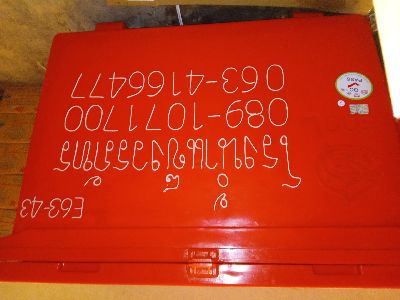 E63-43
โรงน้ำแข็งวรภัทร
089-1071700
063-4166477
QC
PASS